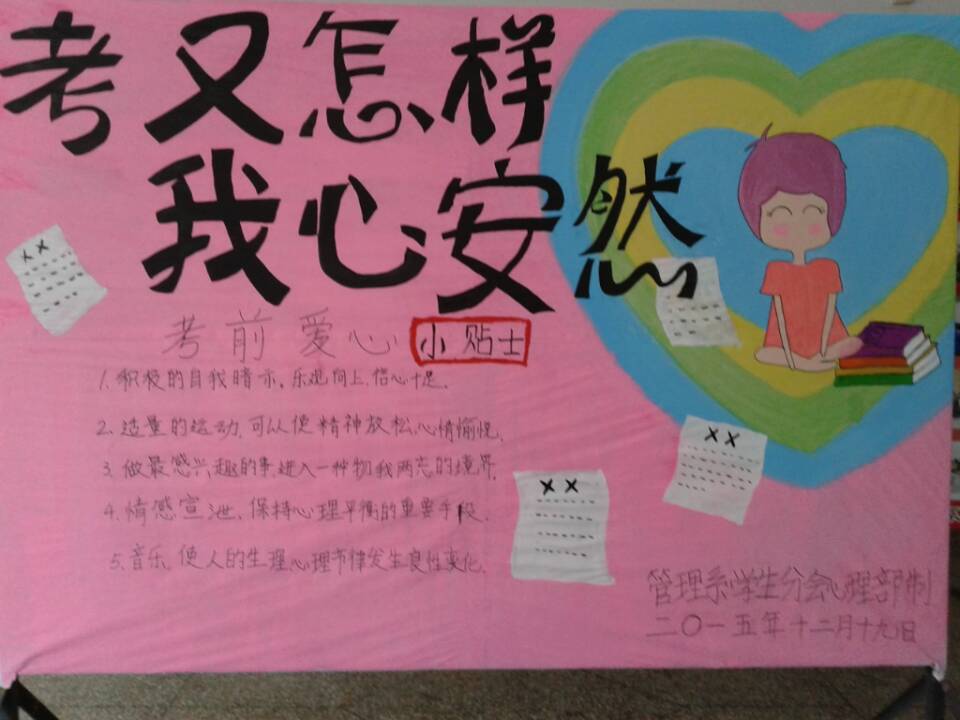 考又怎样
我心安然
考前爱心小贴士
1.积极的自我暗示,乐观向上,信心十足.
2.适量的运动,可以使精神放松,心情愉悦.
3.做最感兴趣的事,进入一种物我两忘的境界.
4.情感宣泄,保持心理平衡的重要手段.
5.音乐,使人的生理心理节律发生良性变化.
××
××
××
管理系学生分会心理部制
二〇一五年十二月十九日